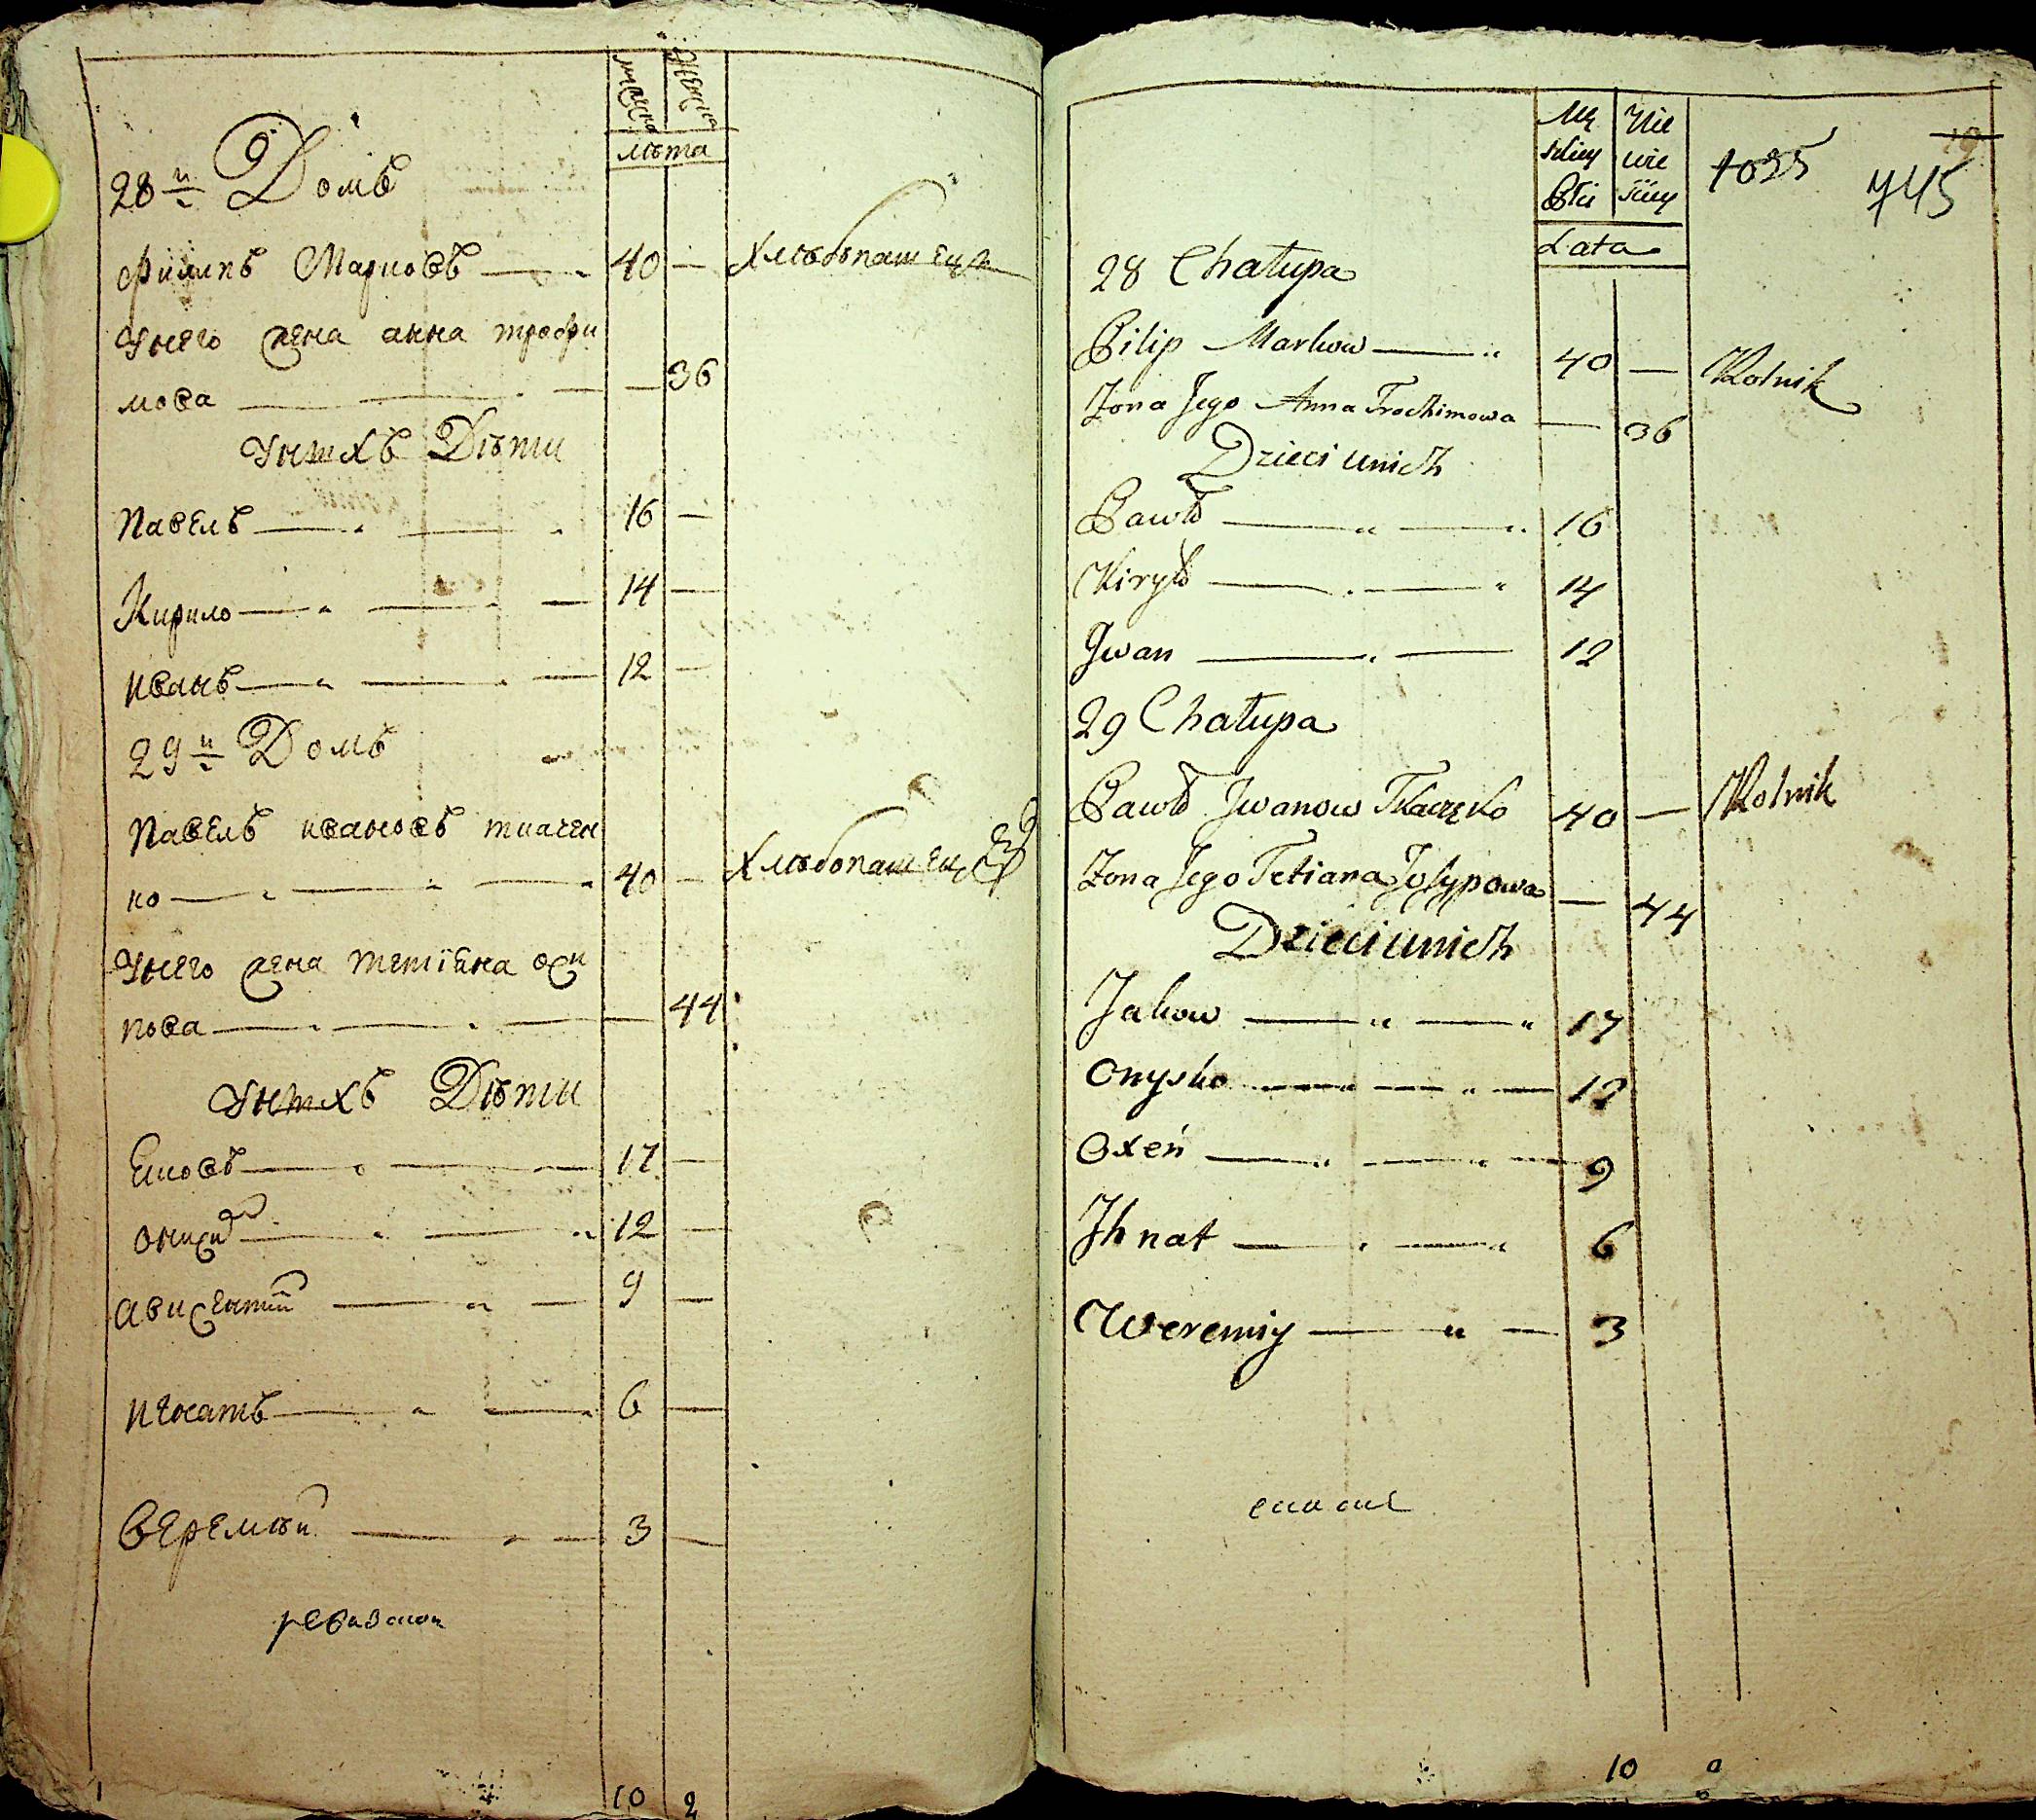 мужска женска
лѣта
28й Домъ
Филипъ Марковъ — 40 — хлѣбопашецъ
Унего жена анна трофи
мова — — 36
Унихъ Дѣти
Павелъ — 16 —
Кирило — 14 —
иванъ — 12 —
29й Домъ
Павелъ ивановъ ткачен
ко — 40 — хлѣбопашецъ
Унего жена Тетіяна оси
пова — — 44
Унихъ Дѣти
Яковъ — 17 —
онисий — 12 —
авксентий — 9 —
игнатъ — 6 —
Веремѣй — 3 —
10 2
Mę Nie
skiey wie
Płci sciey
Lata
1055 745
28 Chałupa
Pilip Markow — 40 — Rolnik
Żona Jego Anna Trochimowa — 36
Dzieci unich
Pawło — 16
Kiryło — 14
Jwan — 12
29 Chałupa
Pawło Jwanow Tkaczęko 40 — Rolnik
Żona Jego Tetiana Josypowa — 44
Dzieci unich
Jakow — 17
Onysko — 12
Oxeń — 9
Jhnat — 6
Weremiy — 3
10